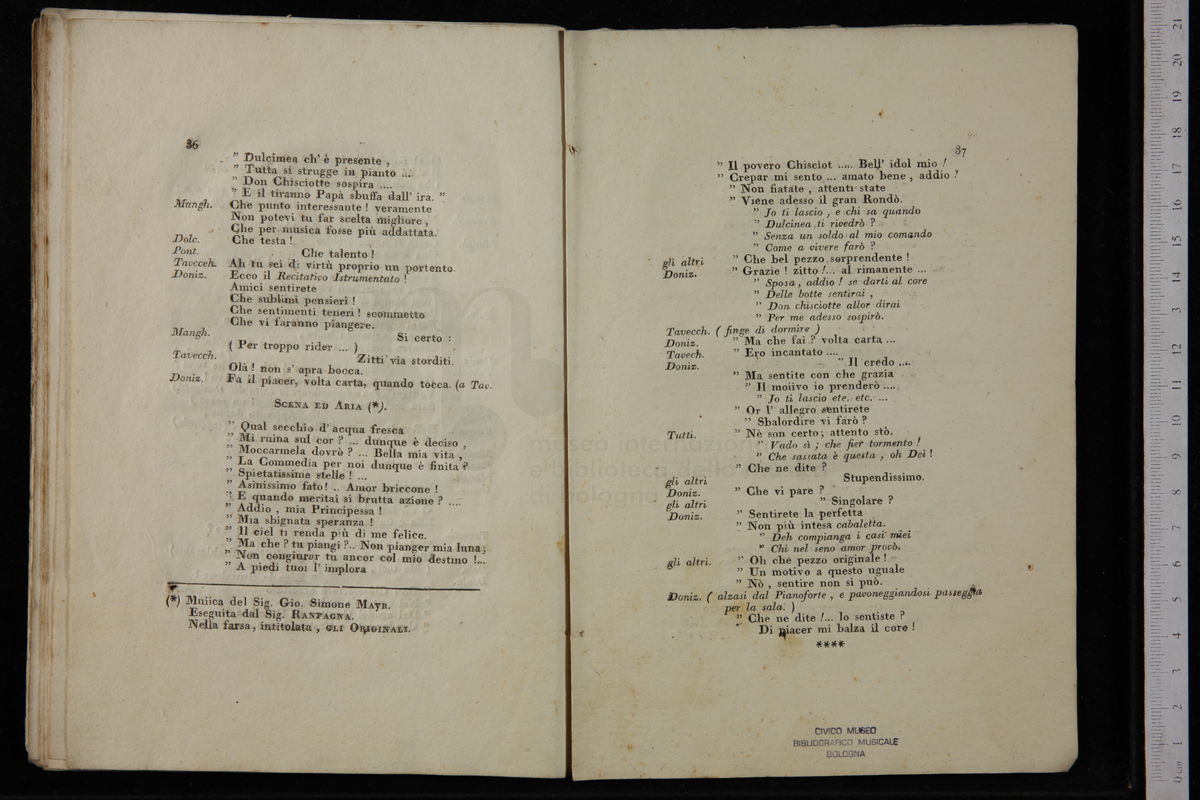 36
” Dulcimea ch' è presente ,
” Tutta si strugge in pianto ...
” Don Chisciotte sospira ....
” E il tiranno Papà sbuffa dall' ira. ”
Mangh. Che punto interessante ! veramente
Non potevi tu far scelta migliore ,
Che per musica fosse più addattata.
Dolc. Che testa !
Pont. Che talento !
Taveceh. Ah tu sei di virtù proprio un portento
Doniz. Ecco il Recitativo Istrumentato !
Amici sentirete
Che sublimi pensieri !
Che sentimenti teneri ! scommetto
Che vi faranno piangere.
Mangh. Si certo :
( Per troppo rider ... )
Tavecch. Zitti via storditi.
Olà ! non s' apra bocca.
Doniz. Fa il piacer, volta carta, quando tocca. (a Tav.
SCENA ED ARIA (*).
” Qual secchio d' acqua fresca
” Mi ruina sul cor ? ... dunque è deciso ,
” Moccarmela dovrò ? ... Bella mia vita ,
” La Commedia per noi dunque è finita ?
” Spietatissime stelle ! ...
” Asinissimo fato ! .. Amor briccone !
” E quando meritai sì brutta azione ? ....
” Addio , mia Principessa !
” Mia sbignata speranza !
” Il ciel ti renda più di me felice.
” Ma che ? tu piangi ?.. Non pianger mia luna;
” Non congiurar tu ancor col mio destino !...
” A piedi tuoi l' implora
(*) Musica del Sig. Gio. Simone MAYR.
Eseguita dal Sig. RANFAGNA.
Nella farsa, intitolata , GLI ORIGINALI.
37
” Il povero Chisciot ..... Bell' idol mio !
” Crepar mi sento ... amato bene , addio !
” Non fiatate , attenti state
” Viene adesso il gran Rondò.
” Jo ti lascio , e chi sa quando
” Dulcinea ti rivedrò ?
” Senza un soldo al mio comando
” Come a vivere farò ?
gli altri ” Che bel pezzo sorprendente !
Doniz. ” Grazie ! zitto !... al rimanente ...
” Sposa, addio ! se darti al core
” Delle botte sentirai ,
” Don chisciotte allor dirai
” Per me adesso sospirò.
Tavecch. ( finge di dormire )
Doniz. ” Ma che fai ? volta carta ...
Tavech. ” Ero incantato ....
Doniz. ” Il credo ....
” Ma sentite con che grazia
” Il motivo io prenderò ....
” Jo ti lascio ete. etc. ...
” Or l' allegro sentirete
” Sbalordire vi farò ?
Tutti. ” Nè son certo; attento stò.
” Vado sì ; che fier tormento !
” Che sassata è questa , oh Dei !
” Che ne dite ?
gli altri Stupendissimo.
Doniz. ” Che vi pare ?
gli altri ” Singolare ?
Doniz. ” Sentirete la perfetta
” Non più intesa cabaletta.
” Deh compianga i casi miei
” Chi nel seno amor provò.
gli altri. ” Oh che pezzo originale !
” Un motivo a questo uguale
” Nò , sentire non si può.
Doniz. ( alzasi dal Pianoforte , e pavoneggiandosi passeggia
per la sala. )
” Che ne dite !... lo sentiste ?
Di piacer mi balza il core !
****
CIVICO MUSEO
BIBLIOGRAFICO MUSICALE
BOLOGNA